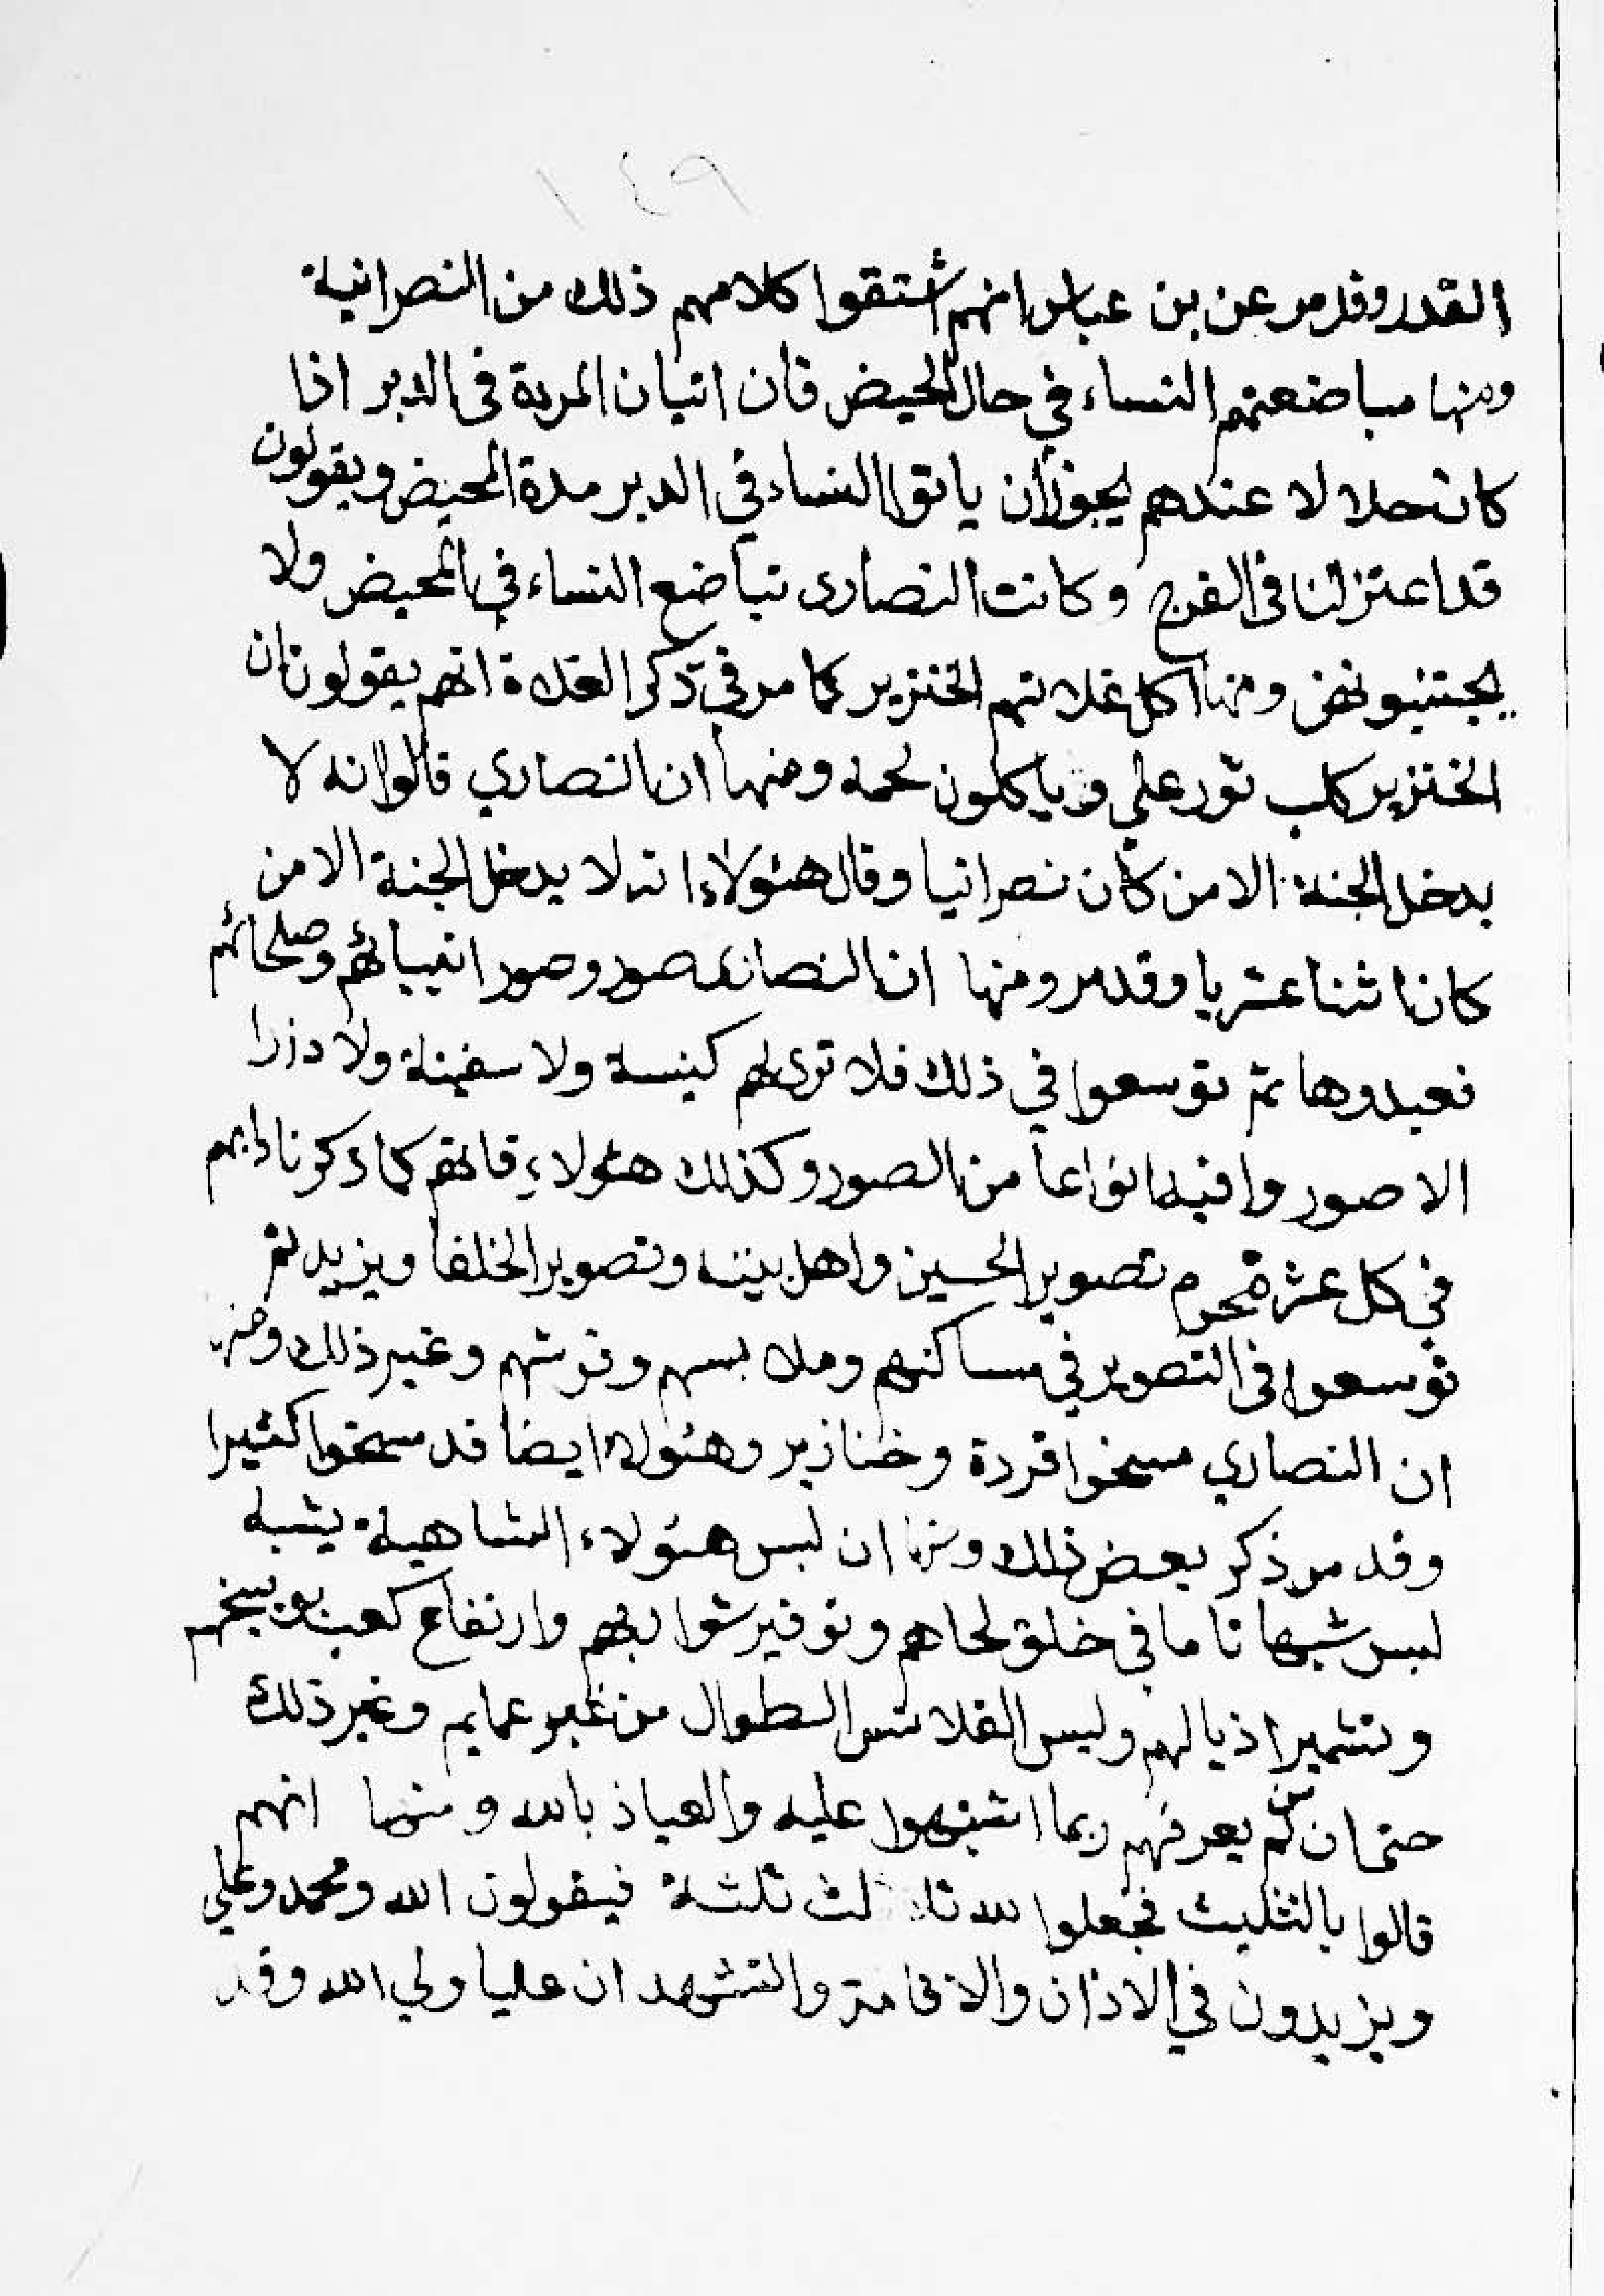 ١٤٩
القدر وقد مر عن بن عباس انهم اشتقوا كلامهم ذلك من النصرانية
ومنها مباضعتهم النساء في حال الحيض فان اتيان المرية فى الدبر اذا
كان حلالا عندهم يجوز ان ياتوا النساء في الدبر مدة المحيض ويقولون
قد اعتزلنا فى الفرج وكانت النصارى تباضع النساء في المحيض ولا
يجتنبونهن ومنها اكل غلاتهم الخنزير كما مر في ذكر الغلاة انهم يقولون ان
الخنزير كلب ثور علي وياكلون لحمه ومنها ان النصاري قالوا انه لا
يدخل الجنة الا من كان نصرانيا وقال هئولاء انه لا يدخل الجنة الا من
كان اثنا عشريا وقد مر ومنها ان النصارى صور وصور انبيائهم وصلحائهم
فعبدوها ثم توسعوا في ذلك فلا ترى لهم كنيسة ولا سفينة ولا دارا
الا صوروا فيها انواعا من الصور وكذلك هئولاء فانهم كما ذكرنا دابهم
في كل عشرة محرم تصوير الحسين واهل بيته وتصوير الخلفا ويزيد ثم
توسعوا فى التصوير في مساكنهم وملابسهم وفرشهم وغير ذلك ومنها
ان النصاري مسخوا قردة وخنازير وهئولاء ايضا قد مسخوا كثيرا
وقد مر ذكر بعض ذلك ومنها ان لبس هئولاء الشاهية يشبه
لبس شبها تاما في حلق لحاهم وتوفير شواربهم وارتفاع كعب
وتشمير اذيالهم ولبس القلانس الطوال من غير عمايم وغير ذلك
حتى ان من لم يعرفهم ربما اشتبهوا عليه والعياذ بالله ومنها انهم
قالوا بالتثليث فجعلوا لله ثالث ثلثة فيقولون الله ومحمد وعلي
ويزيدون في الاذان والاقامة والتشهد ان عليا ولي الله وقد